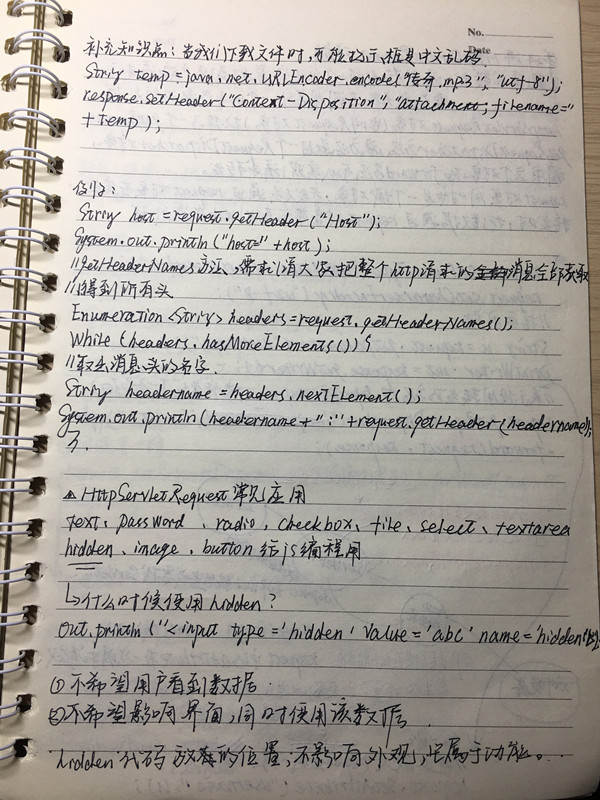 No.
Date
补充知识点：当我们下载文件时，可能提示框是中文乱码
String temp=java.net.URLEncoder.encode("传奇.mp3","utf-8");
response.setHeader("Content-Disposition","attachment; filename="
+temp);
String host=request.getHeader("Host");
System.out.println("host="+host);
//getHeaderNames方法，把整个http请求的消息全部获取
//得到所有头
Enumeration<String> headers=request.getHeaderNames();
While(headers.hasMoreElements()){
//取出消息头的名字
String headername=headers.nextElement();
System.out.println(headername+":"+request.getHeader(headername);
}
HttpServletRequest常见应用
text、password、radio、checkbox、file、select、textarea
hidden、image、button给js编程用
什么时候使用hidden?
out.println("<input type='hidden' value='abc' name='hidden
①不希望用户看到数据.
②不希望影响界面，同时使用该数据.
hidden代码放的位置；不影响外观，它属于功能。